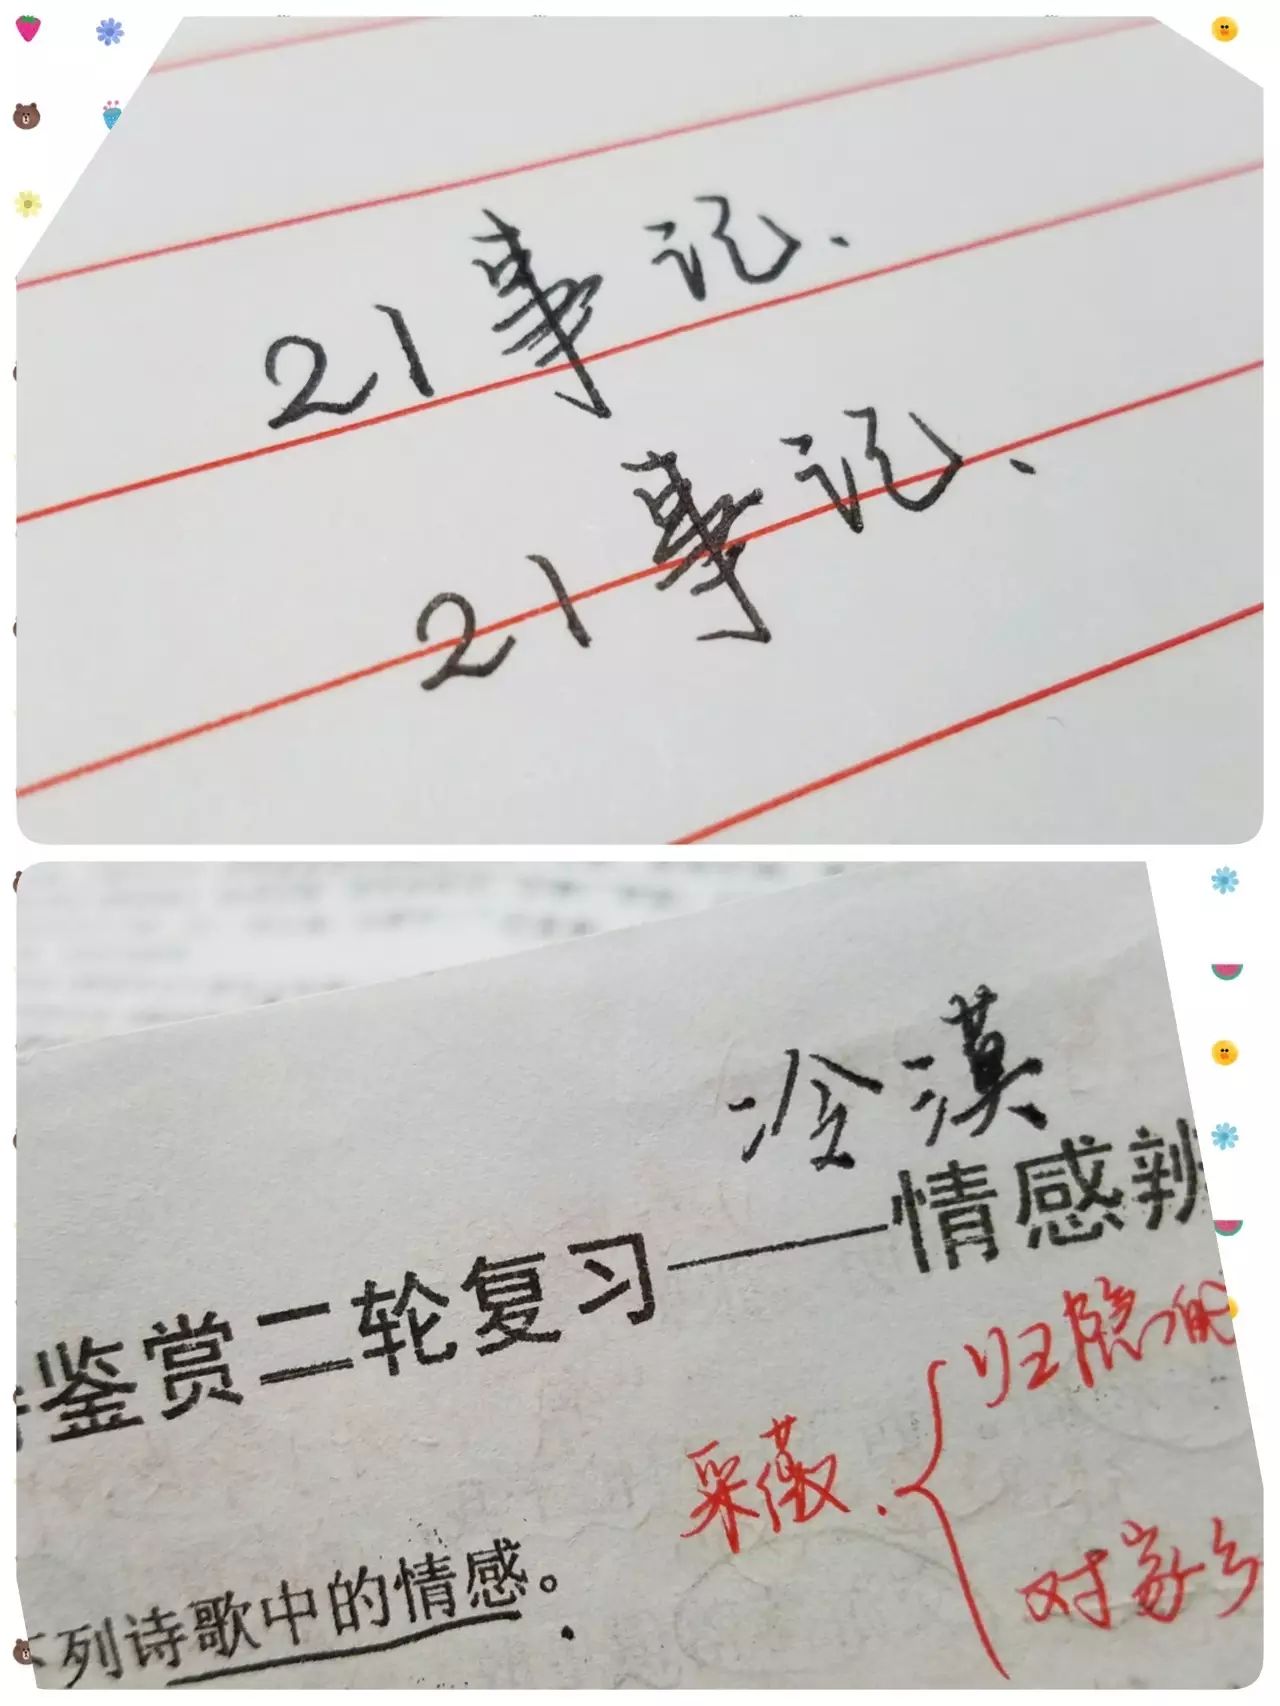 21事记.
21事记.
冷漠
鉴赏二轮复习——情感辨
归隐的
采薇.
对家乡
列诗歌中的情感。